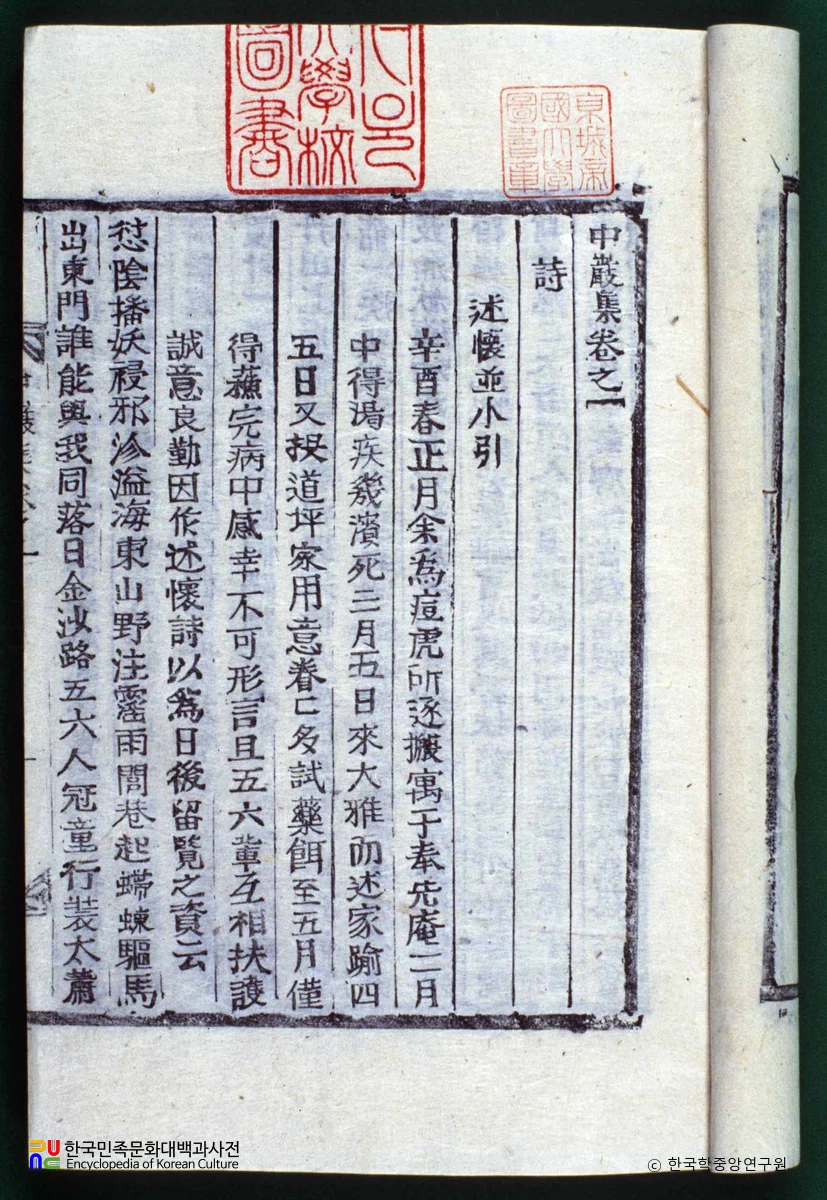 中巖集卷之一
詩
述懷並小引
辛酉春正月余爲痘虎所逐搬寓于奉先庵二月
中得渴疾幾濱死三月五日來大雅而述家踰四
五日又投道坪家用意眷〻多試藥餌至五月僅
得蘇完病中感幸不可形言且五六輩互相扶護
誠意良勤因作述懷詩以爲日後留覽之資云
愆陰播妖祲邪沴溢海東山野注霪雨閭巷起螮蝀驅馬
出東門誰能與我同落日金沙路五六人冠童行裝太蕭
大學校
圖書
京城帝
國大學
圖書章
한국민족문화대백과사전
Encyclopedia of Korean Culture
© 한국학중앙연구원